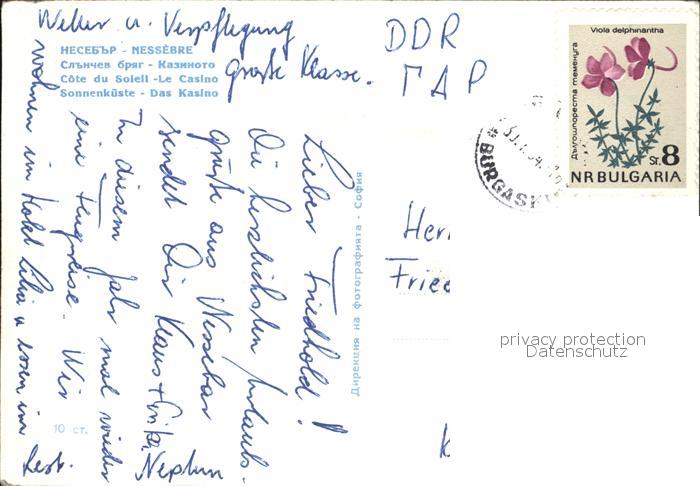 Wetter u. Verpflegung
große Klasse.
НЕСЕБЪР - NESSÈBRE
Слънчев бряг - Казиното
Côte du Soleil - Le Casino
Sonnenküste - Das Kasino
Lieber Friedhold!
Die herzlichsten Urlaubs-
grüße aus Nessebar
sendet Dir Klaus +
In diesem Jahr mal wieder
eine Flugreise. Wir
wohnen im Hotel Lilia u essen im
Rest. Neptun
10 ст.
Дирекция на фотографията - София
DDR
ГДР
Viola delphinantha
Дългошпореста теменуга
St. 8
NR BULGARIA
BURGAS
Her
Fried
privacy protection
Datenschutz